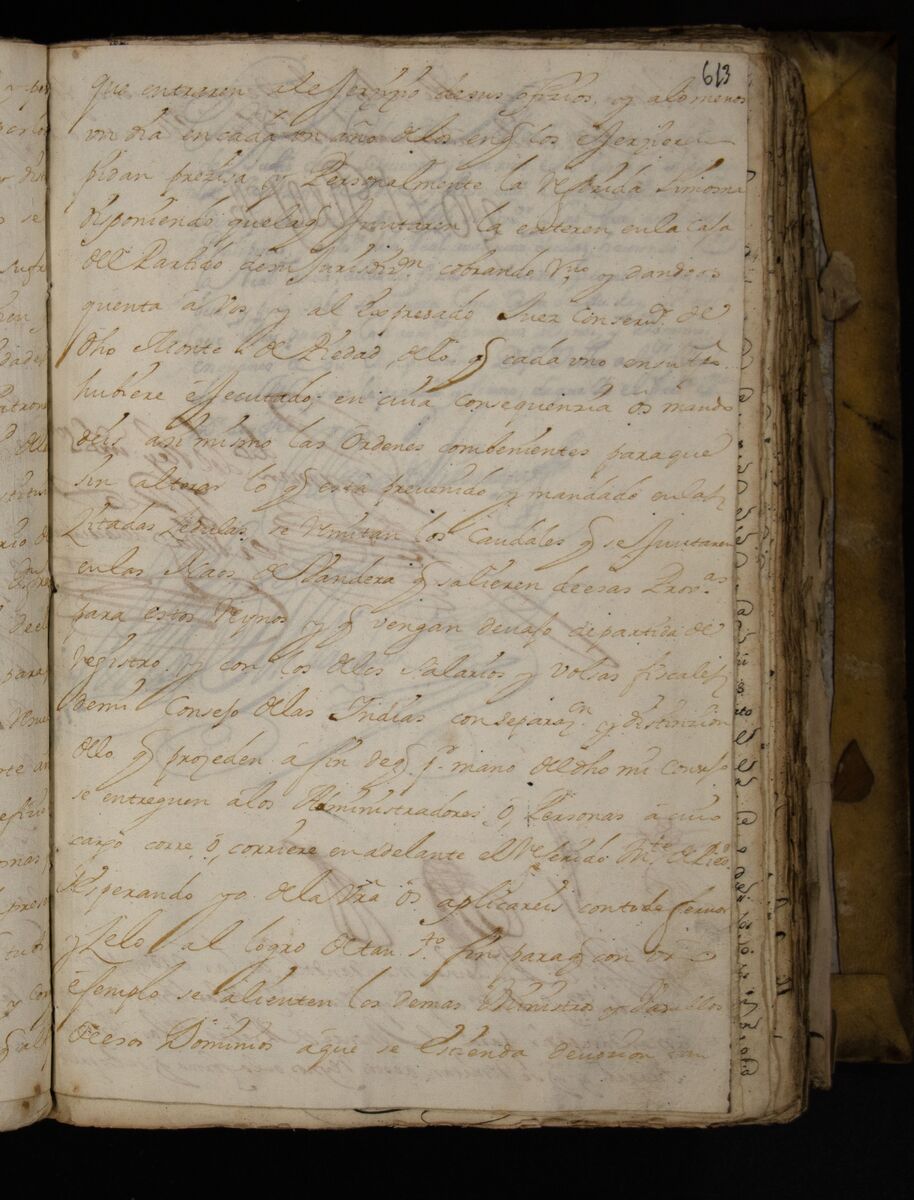 613
que entraren al exerzizio de sus oficios, y alomenos
un dia en cada un año de los en q los exerzieren
pidan preziza y Personalmente la referida Limosna
disponiendo que la q juntaren la enteren en la Casa
del Partido de su Jurisdizn cobrando rvo y dandoos
quenta a Vos, y al Expresado Juez Conservr de
dho Monte de Piedad, de lo q cada uno en su
hubiere executado; en cuia consequenzia os manda
deis asi mismo las ordenes combenientes para que
sin alterar lo q esta prevenido y mandado en las
Zitadas Zedulas, se remitan los Caudales q se juntaren
en las Naos de Vandera q salieren de esas Provas
para estos Reynos, y q vengan devajo de partida de
registro, y con los de los Salarios y Volsas fiscales
de mi Consejo de las Indias con separazn y distinzion
de lo q prozeden á fin de q pr mano del dho mi Consejo
se entreguen a los Administradores, ó, Personas á cuio
cargo corre, ó, corriere en adelante el referido Mte de Pied
Esperando yo de la Vra os aplicareis con todo fervor
y Zelo al logro de tan sto fin para q con vro
exemplo se alienten los demas Ministros y Vasallos
de esos Dominios á que se estienda devozion tan